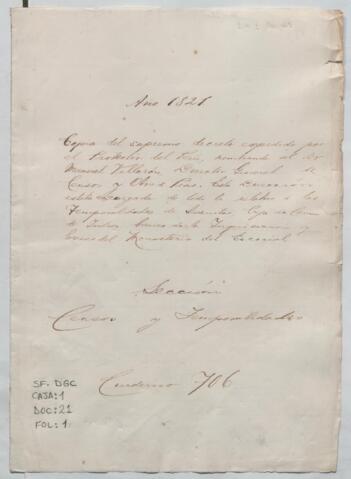 Año 1821
Copia del supremo decreto expedido por
el Protector del Perú, nombrando al Dr
Manuel Villarán, Director General de
Censos y Obras Pías. Esta Dirección
estaba encargada de todo lo relativo a las
Temporalidades de Jesuitas, Caja de Censos
de Indios, Censos de la Inquisición y
Censos del Monasterio del Escorial
Sección
Censos y Temporalidades
Cuaderno 706
SF. DGC
CAJA: 1
DOC: 21
FOL: 1